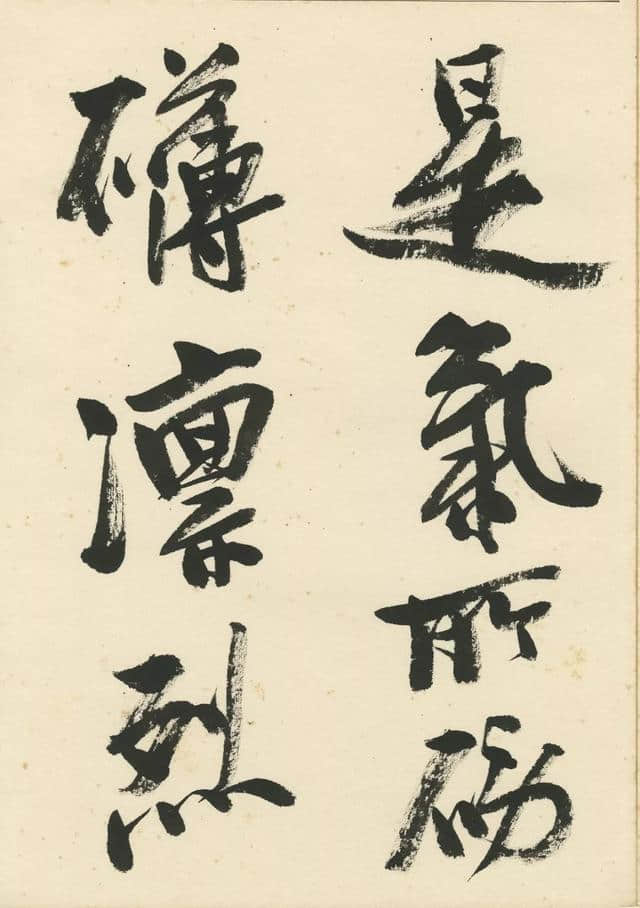 是氣所磅
礴凛烈